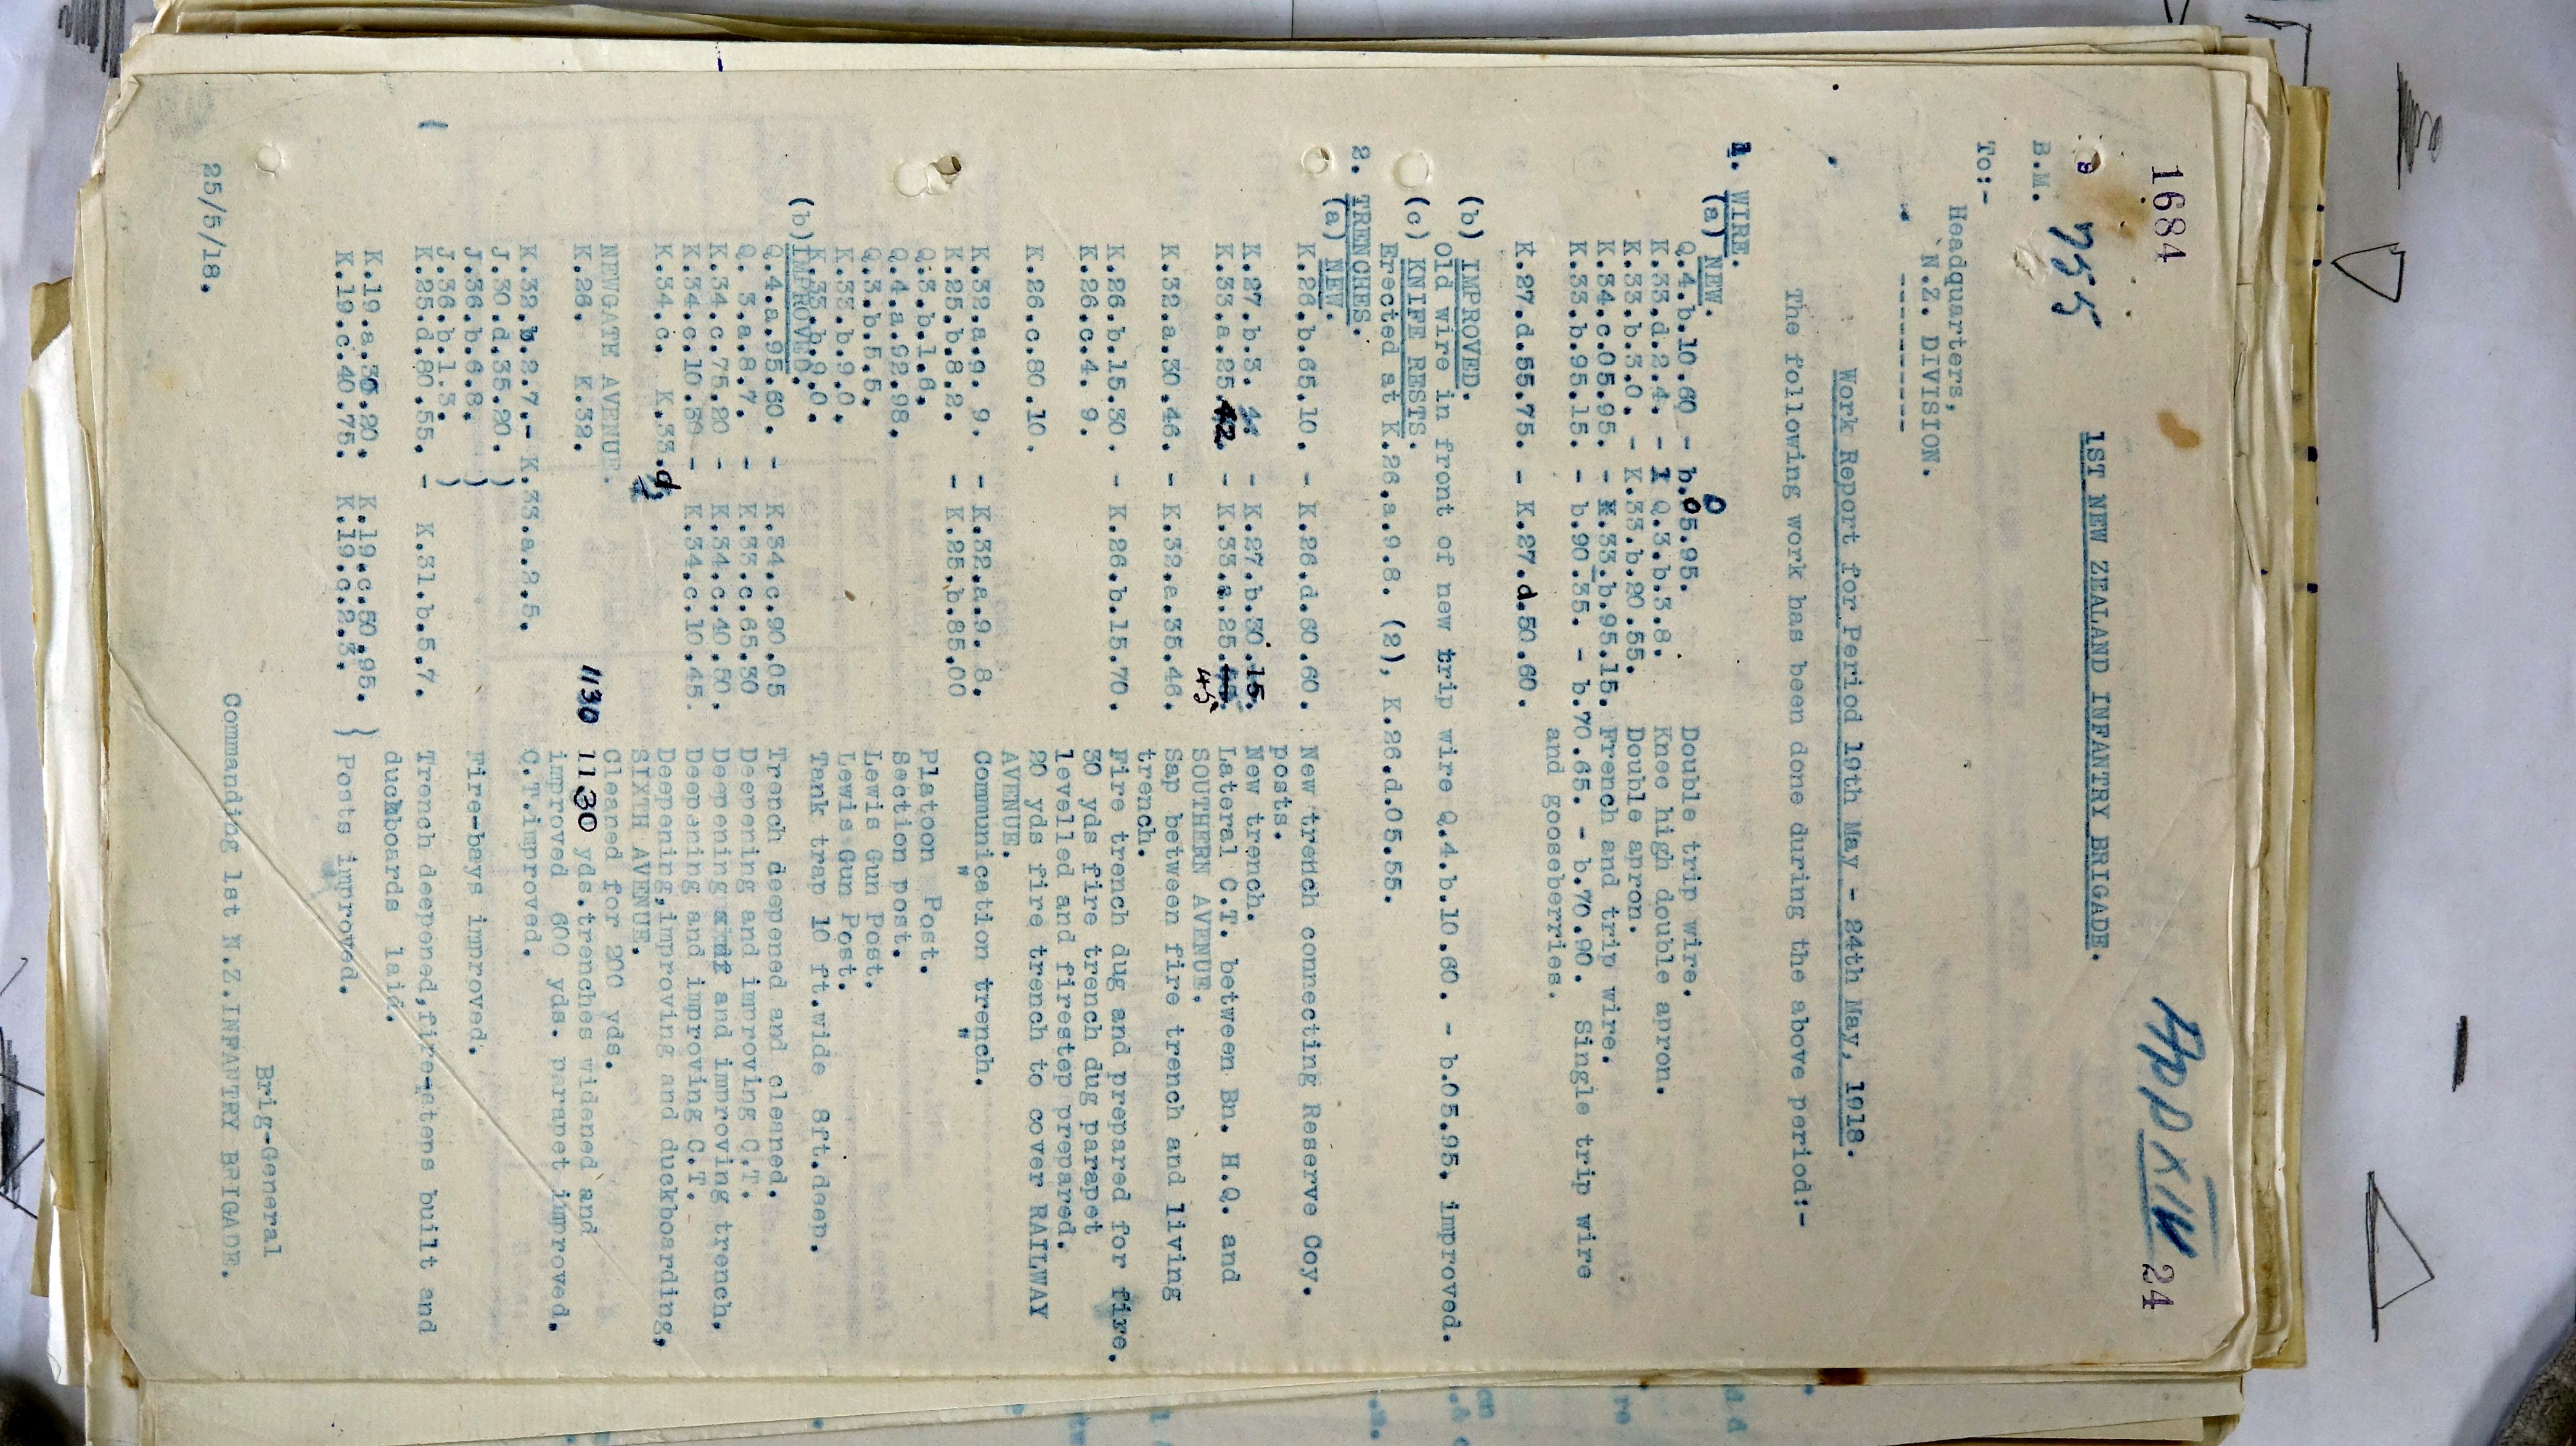 1684
App XIV 24
1ST NEW ZEALAND INFANTRY BRIGADE.
B.M. 755
To:-
Headquarters,
N.Z. DIVISION.
----------
Work Report for Period 19th May - 24th May, 1918.
The following work has been done during the above period:-
1. WIRE.
(a) NEW.
Q.4.b.10.60 - b.05.95. Double trip wire.
K.33.d.2.4. - Q.3.b.3.8. Knee high double apron.
K.33.b.3.0. - K.33.b.20.55. Double apron.
K.34.c.05.95. - K.33.b.95.15. French and trip wire.
K.33.b.95.15. - b.90.35. - b.70.65. - b.70.90. Single trip wire
and gooseberries.
K.27.d.55.75. - K.27.d.50.60.
(b) IMPROVED.
Old wire in front of new trip wire Q.4.b.10.60. - b.05.95. improved.
(c) KNIFE RESTS.
Erected at K.26.a.9.8. (2), K.26.d.05.55.
2. TRENCHES.
(a) NEW.
K.26.b.65.10. - K.26.d.60.60. New trench connecting Reserve Coy.
posts.
K.27.b.3. - K.27.b.30.15. New trench.
K.33.a.25.42. - K.33.a.25.45. Lateral C.T. between Bn. H.Q. and
SOUTHERN AVENUE.
K.32.a.30.46. - K.32.a.35.46. Sap between fire trench and living
trench.
K.26.b.15.30. - K.26.b.15.70. Fire trench dug and prepared for fire.
K.26.c.4. 9. 30 yds fire trench dug parapet
levelled and firestep prepared.
K.26.c.80.10. 20 yds fire trench to cover RAILWAY
AVENUE.
K.32.a.9. 9. - K.32.a.9. 8. Communication trench.
K.25.b.8.2. - K.25.b.85.00 " "
Q.3.b.1.6. Platoon Post.
Q.4.a.92.98. Section post.
Q.3.b.5.5. Lewis Gun Post.
K.33.b.9.0. Lewis Gun Post.
K.33.b.9.0. Tank trap 10 ft.wide 8ft.deep.
(b) IMPROVED.
Q.4.a.95.60. - K.34.c.90.05 Trench deepened and cleaned.
Q. 3.a.8.7. - K.33.c.65.30 Deepening and improving C.T.
K.34.c.75.20 - K.34.c.40.50. Deepening and improving trench.
K.34.c.10.30 - K.34.c.10.45. Deepening and improving C.T.
K.34.c. K.33.d. Deepening,improving and duckboarding,
SIXTH AVENUE.
NEWGATE AVENUE. Cleaned for 200 yds.
K.26. K.32. 1130 1130 yds.trenches widened and
improved 600 yds. parapet improved.
K.32.b.2.7.- K.33.a.2.5. C.T.improved.
J.30.d.35.20. )
J.36.b.6.8. ) Fire-bays improved.
J.36.b.1.3. )
K.25.d.80.55. - K.31.b.5.7. Trench deepened,fire-steps built and
duckboards laid.
K.19.a.30.20. K.19.c.50.95. }
K.19.c.40.75. K.19.c.2.3. } Posts improved.
Brig-General
25/5/18. Commanding 1st N.Z.INFANTRY BRIGADE.